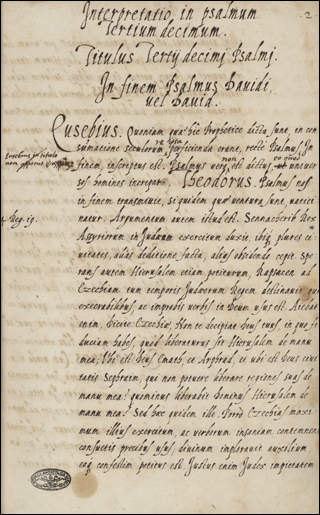 2
Interpretatio in psalmum
Tertium decimum.
Titulus Tertij decimi Psalmi.
In finem Psalmus Dauidi,
vel Dauid.
Eusebius. Quoniam quæ hic Prophetice dicta sunt, in con
sumatione seculorum re ipsa perficienda erant, recte Psalmus In
finem inscriptus est. Psalmus vero non est dictus,
sos homines increpat. Theodorus. Psalmus nos
in finem transmittit, siquidem quæ ventura sunt, vatici
natur. Argumentum autem illud est. Sennacherib Rex
Assyriorum in Judæam exercitum duxit, ibiq plures ci
uitates, alias deditione, facta, alias obsidendo cepit. Spe
rans autem Hierusalem etiam potiturum, Rapsacen ad
Ezechiam tum temporis Judæorum Regem destinauit, qui
execrabilibus, ac improbis verbis in Deum usus est. Aiebat
enim, Dicite Ezechiæ: Non te decipiat Deus tuus, in quo fi
duciam habes, quod liberabitur sit Hierusalem de manu
mea: Vbi est Deus Emath, et Arphad, et ubi est Deus ciui
tatis Sepharim, qui non potuere liberare regiones suas de
manu mea? quominus liberabit Dominus Hierusalem de
manu mea? Sed hæc quidem ille. Porro Ezechias maxi
mum illius exercitum, ac verborum insaniam contemnens,
consuetis precibus usus, diuinum implorauit auxilium
eoq confestim potitus est. Justus enim Judex impietatem
4. Reg. 19.